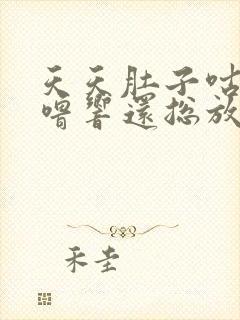 天天肚子咕
噜響還总放
禾圭